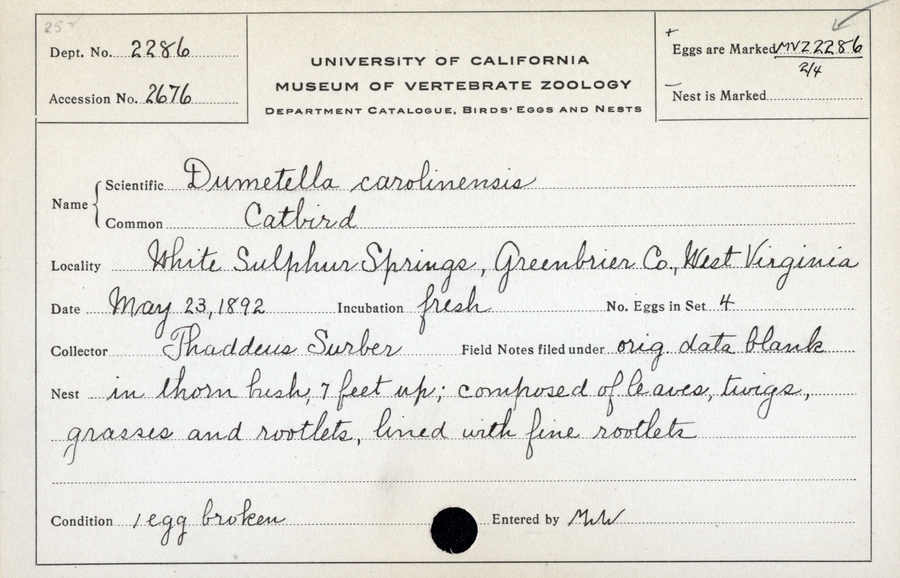 25
Dept. No. 2286
Accession No. 2676
UNIVERSITY OF CALIFORNIA
MUSEUM OF VERTEBRATE ZOOLOGY
DEPARTMENT CATALOGUE, BIRDS' EGGS AND NESTS
+
Eggs are Marked MVZ 2286
2/4
—
Nest is Marked
Name
Scientific Dumetella carolinensis
Common Catbird
Locality White Sulphur Springs, Greenbrier Co., West Virginia
Date May 23, 1892 Incubation fresh No. Eggs in Set 4
Collector Thaddeus Surber Field Notes filed under orig. data blank
Nest in thorn bush, 7 feet up; composed of leaves, twigs,
grasses and rootlets, lined with fine rootlets
Condition 1 egg broken Entered by